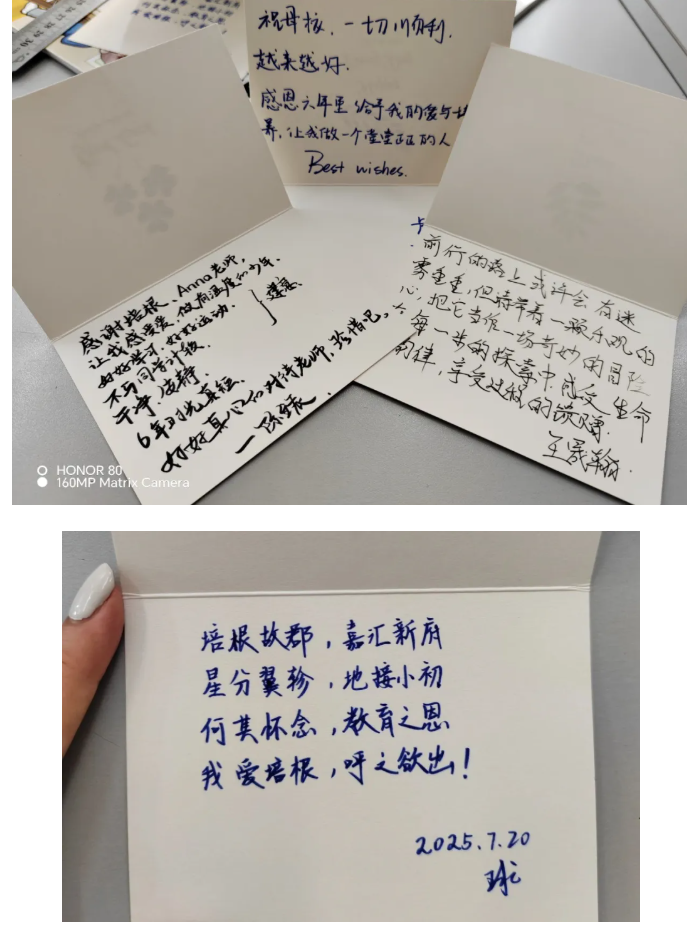 祝母校，一切顺利，
越来越好.
感恩六年里给予我的爱与培
养，让我做一个堂堂正正的人
Best wishes.
感谢培根、Anna老师，
让我感受爱，做有温度的少年.
好好学习，好好运动.
不与同学计较.
干净 安静.
6年时光真短
好好真心的对待老师，珍惜吧。
前行的路上或许会有迷
雾重重，但请带着一颗乐观的
心，把它当作一场奇妙的冒险
每一步的探索中，感受生命
的律，享受过程的馈赠.
王晟翰.
HONOR 80
160MP Matrix Camera
培根故郡，嘉汇新府
星分翼轸，地接小初
何其怀念，教育之恩
我爱培根，呼之欲出！
2025.7.20